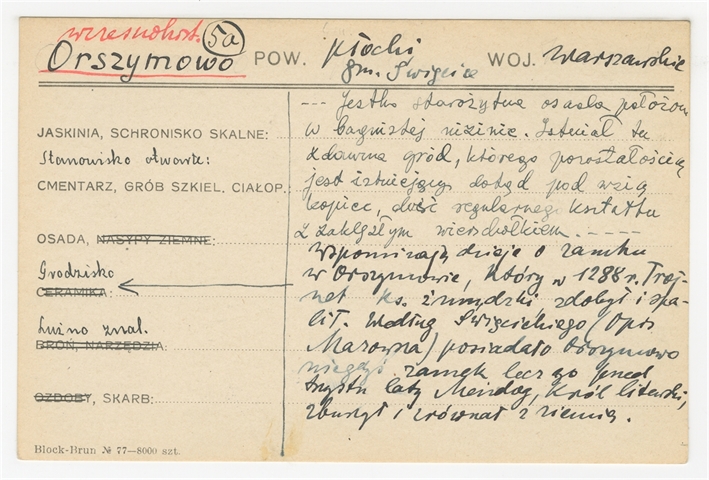 wczesnohist. 50
Orszymowo POW. płocki WOJ. Warszawskie
gm. Święcice
--- Jest to starożytna osada położona
JASKINIA, SCHRONISKO SKALNE: w bagnistej nizinie. Istniał tu
Stanowisko otwarte: zdawna gród, którego pozostałością
CMENTARZ, GRÓB SZKIEL. CIAŁOP.: jest istniejący dotąd pod wsią
kopiec, dość regularnego kształtu
OSADA, NASYPY ZIEMNE: z zaklęsłym wierzchołkiem. ----
Wspominają dzieje o zamku
Grodzisko w Orszymowie, który w 1288 r. Troj-
CERAMIKA: nat ks. żmudzki zdobył i spa-
Luźno znal. lił. Według Święcickiego (Opis
BROŃ, NARZĘDZIA: Mazowsza) posiadało Orszymowo
niegdyś zamek lecz go przed
OZDOBY, SKARB: trzystu laty Mendog, Król litewski,
zburzył i zrównał z ziemią.
Block-Brun № 77—8000 szt.